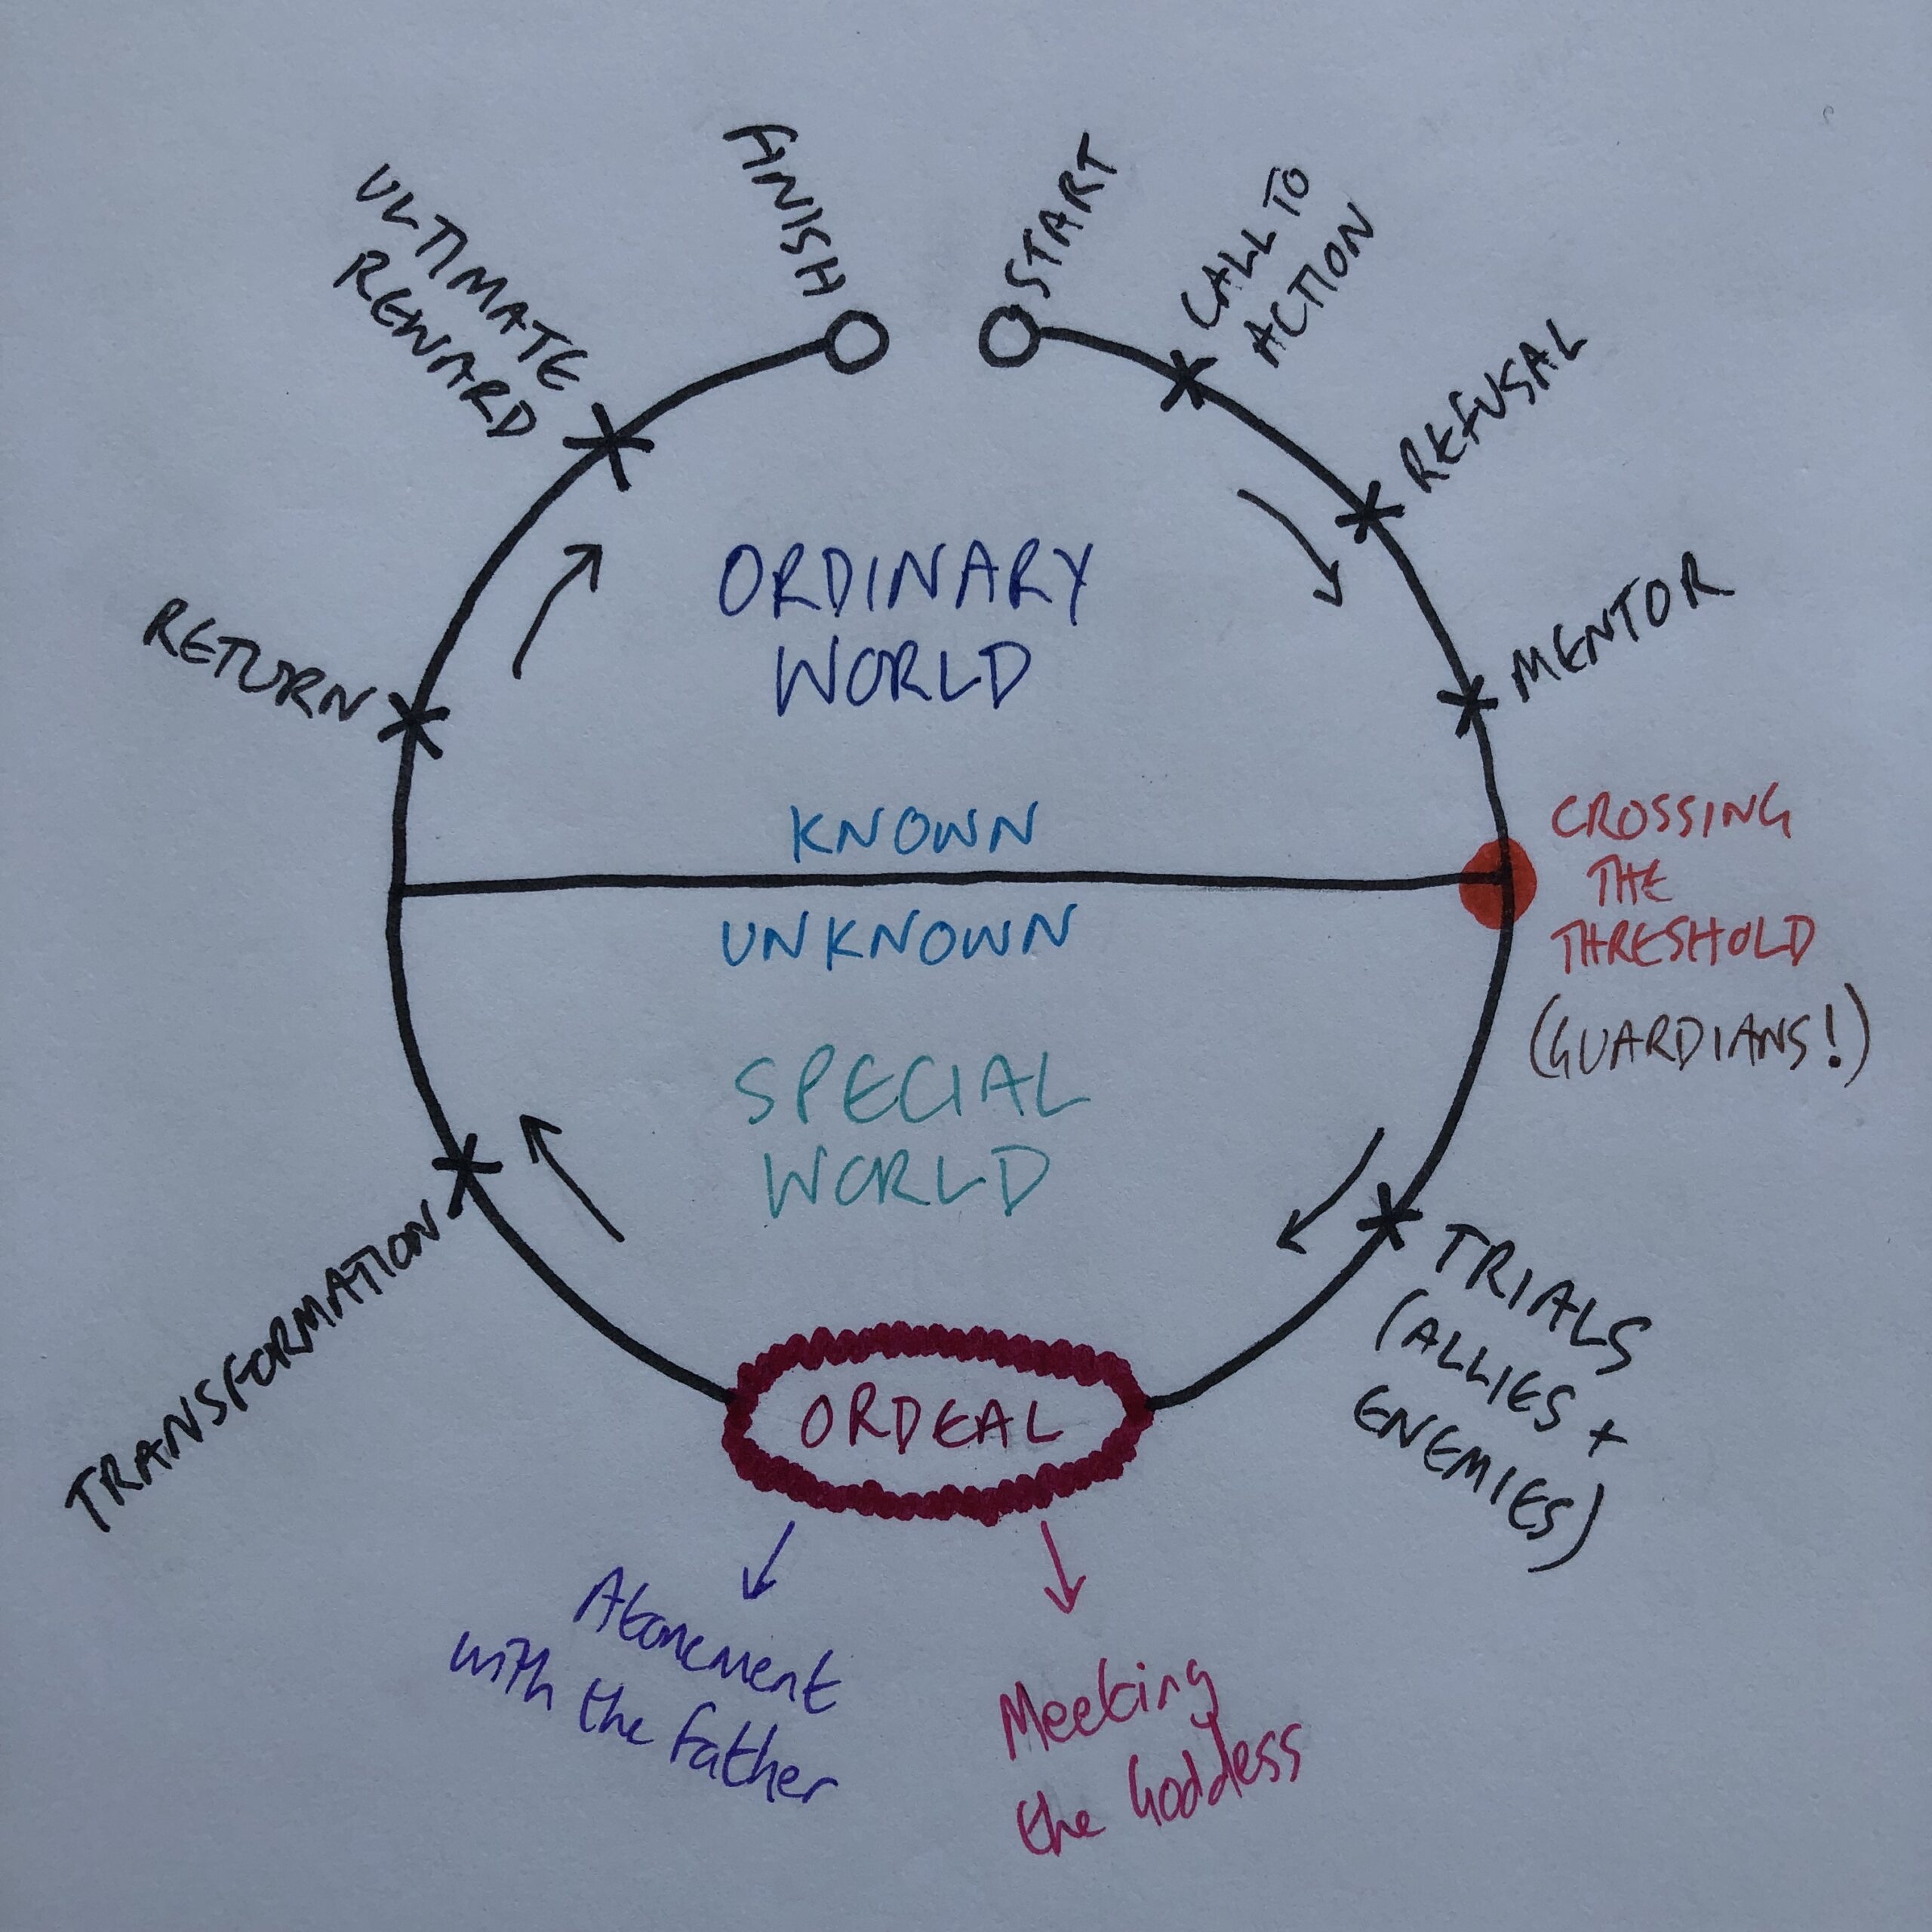 FINISH
START
CALL TO
ACTION
REFUSAL
MENTOR
CROSSING
THE
THRESHOLD
(GUARDIANS!)
TRIALS
(ALLIES +
ENEMIES)
ORDEAL
Meeting
the Goddess
Atonement
with the father
TRANSFORMATION
RETURN
ULTIMATE
REWARD
ORDINARY
WORLD
KNOWN
UNKNOWN
SPECIAL
WORLD